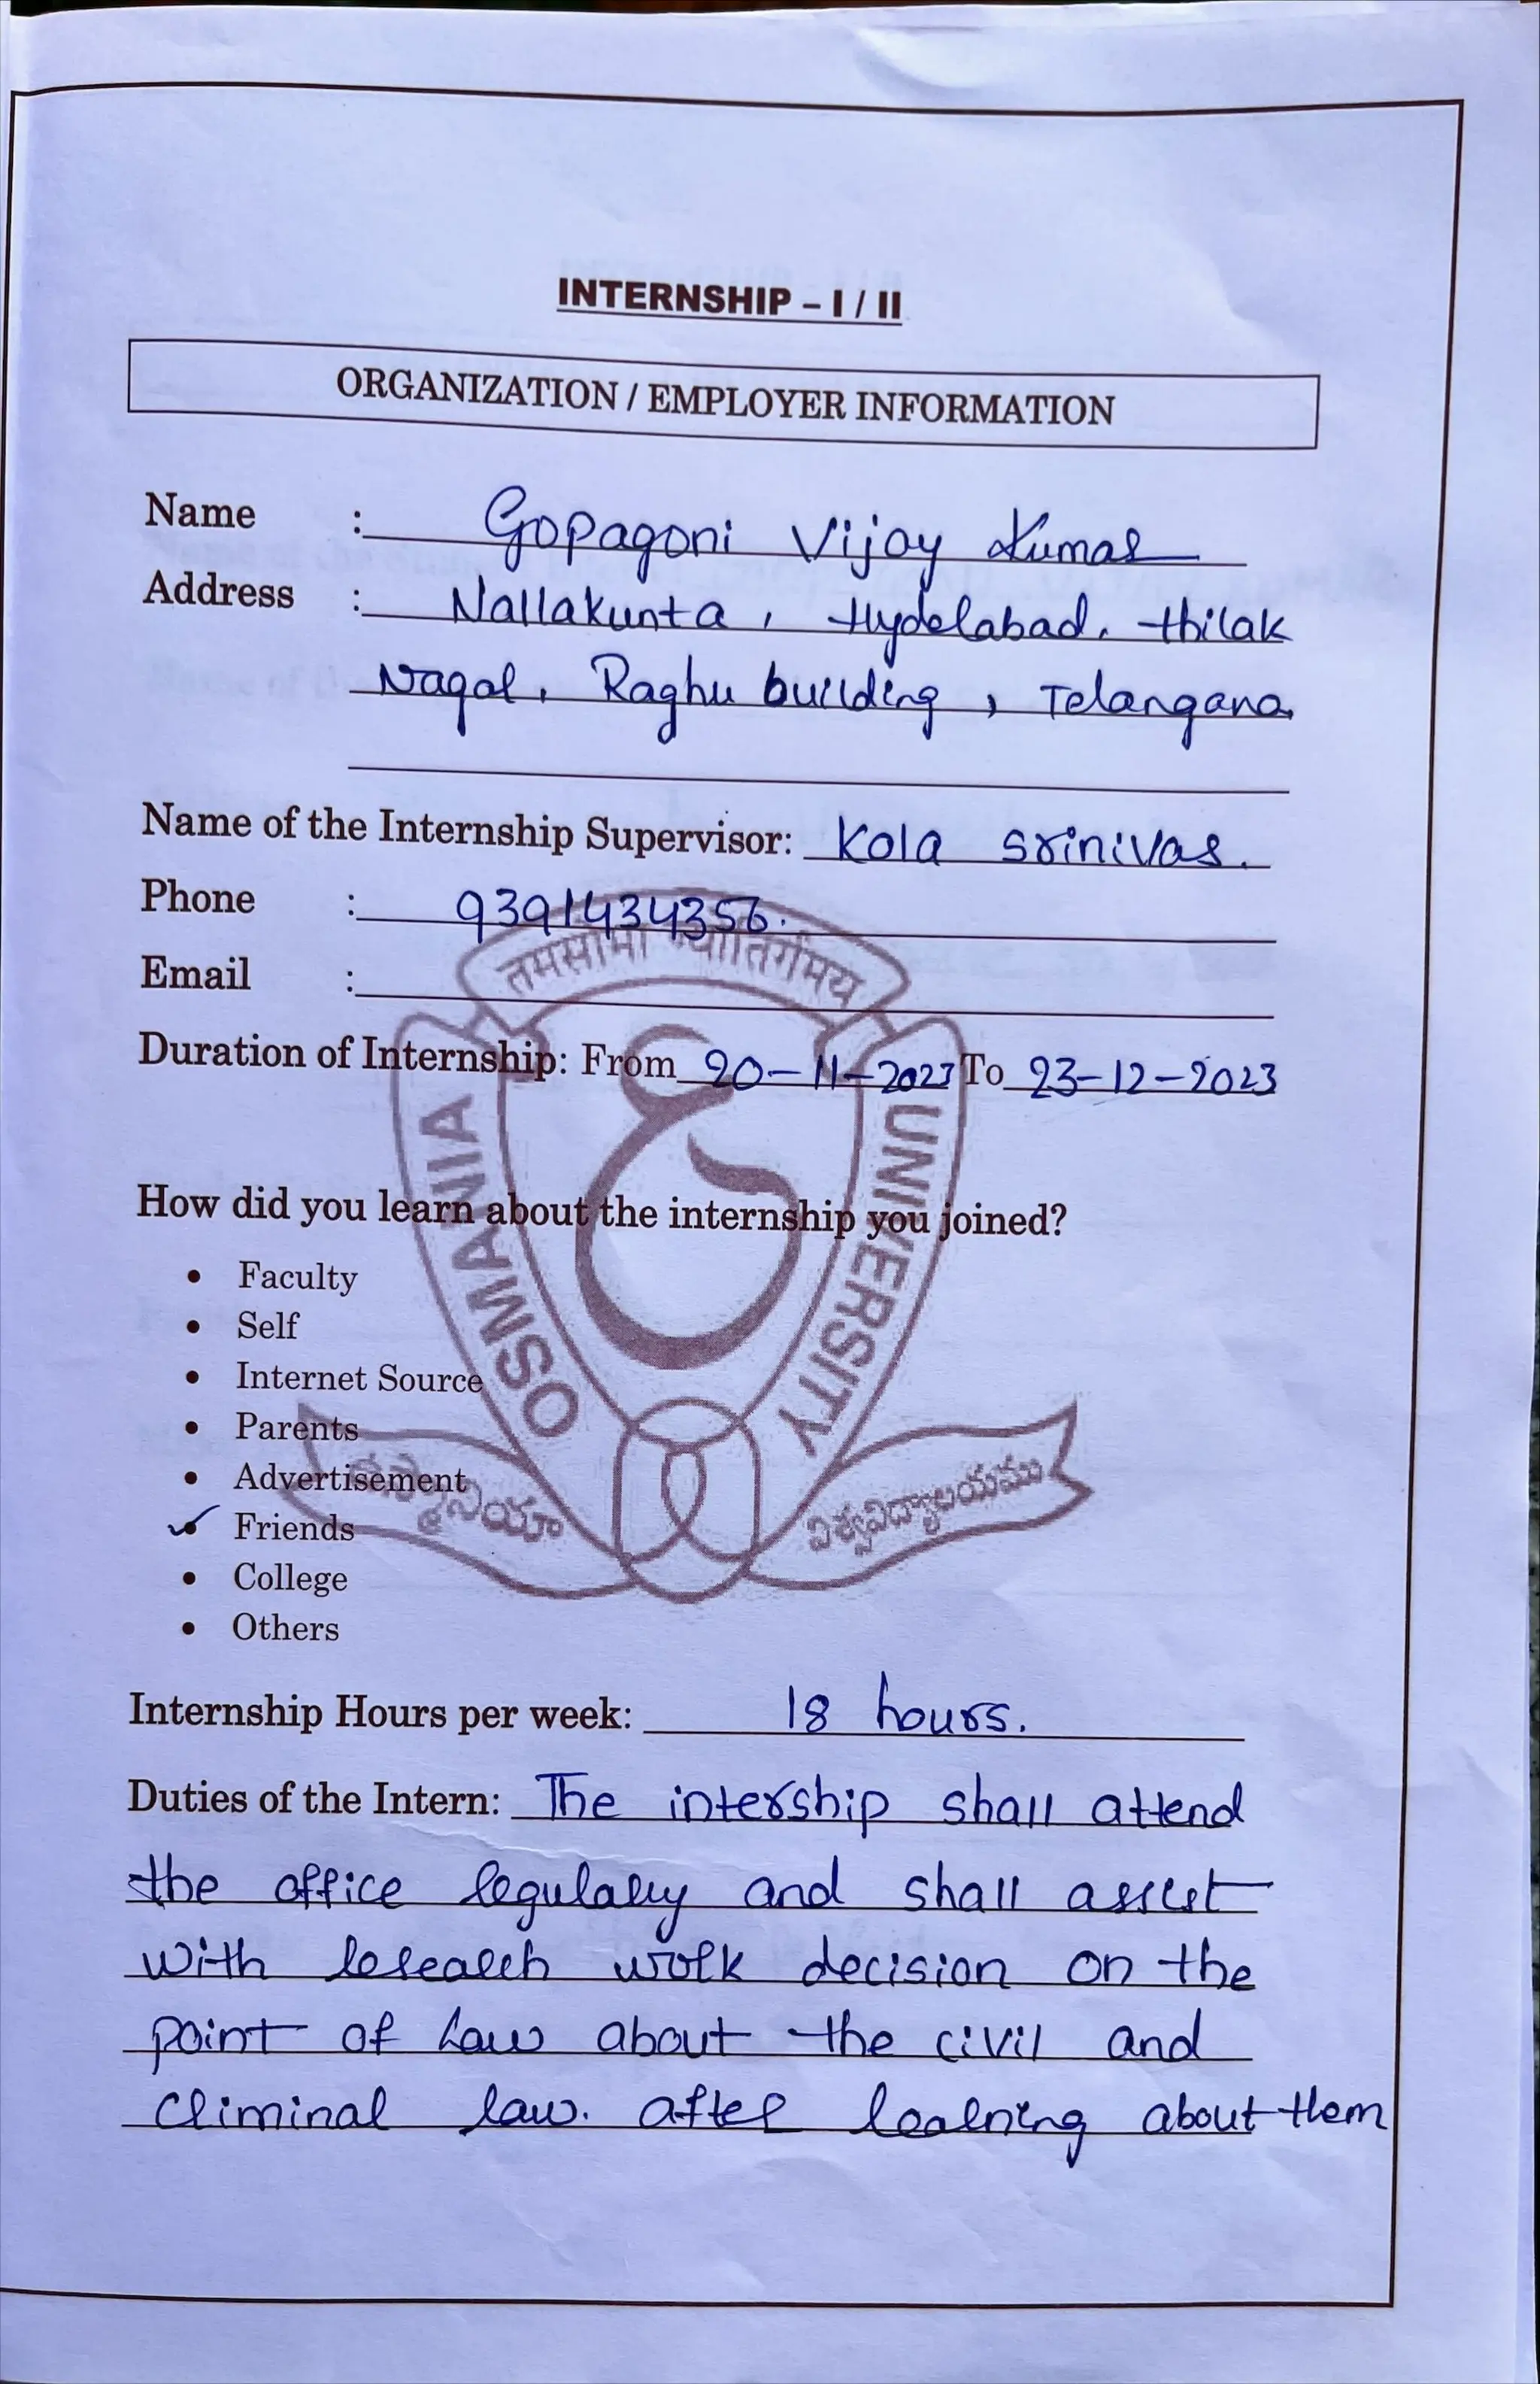 INTERNSHIP – I / II
ORGANIZATION / EMPLOYER INFORMATION
Name : Gopagoni Vijay Kumar
Address : Nallakunta, Hyderabad, thilak
Nagar, Raghu building, Telangana.
Name of the Internship Supervisor: Kola srinivas.
Phone : 9391434356.
तमसोमा ज्योतिर्गमय
Email :
Duration of Internship: From 20-11-2023 To 23-12-2023
OSMANIA UNIVERSITY
How did you learn about the internship you joined?
• Faculty
• Self
• Internet Source
• Parents
• Advertisement
✓ Friends
ఉస్మానియా విశ్వవిద్యాలయము
• College
• Others
Internship Hours per week: 18 hours.
Duties of the Intern: The intership shall attend
the office regularly and shall assist
with research work decision on the
point of Law about the civil and
criminal law. after learning about them